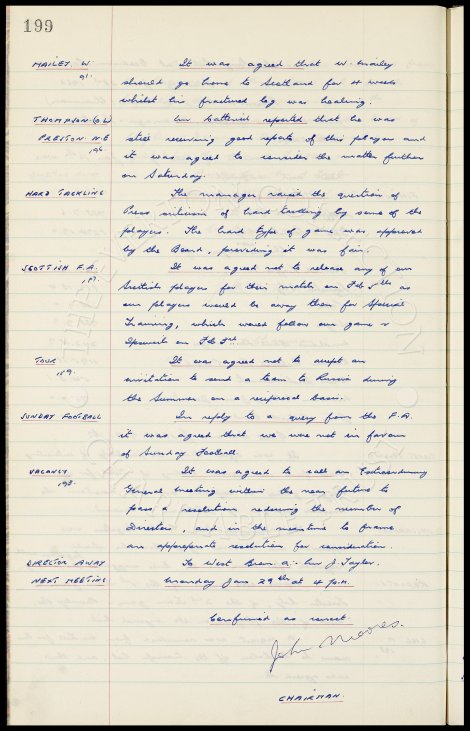 199
MAILEY. W. It was agreed that W. Mailey
91. should go home to Scotland for 4 weeks
whilst his fractured leg was healing.
THOMPSON (G.W) Mr Catterick reported that he was
PRESTON. N.E still receiving good reports of this player and
196 it was agreed to consider the matter further
on Saturday.
HARD TACKLING The manager raised the question of
Press criticism of hard tackling by some of the
players. The hard type of game was approved
by the Board, providing it was fair.
SCOTTISH F.A. It was agreed not to release any of our
Scottish players for their match on Feb 5th as
our players would be away then for Special
Training, which would follow our game v
Ipswich on Feb 3rd.
TOUR It was agreed not to accept an
189. invitation to send a team to Russia during
the Summer on a reciprocal basis.
SUNDAY FOOTBALL In reply to a query from the F.A.
it was agreed that we were not in favour
of Sunday Football
VACANCY It was agreed to call an Extraordinary
198. General Meeting within the near future to
pass a resolution reducing the number of
Directors, and in the meantime to frame
an appropriate resolution for consideration.
DIRECTOR AWAY To West Brom. A:- Mr J. Taylor.
NEXT MEETING Monday Jan 29th at 4 p.m.
Confirmed as correct
John Moores.
CHAIRMAN.